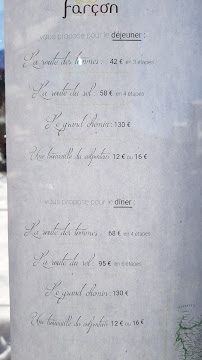 farçon
vous propose pour le déjeuner :
La route des tommes : 42 € en 3 étapes
La route du sel : 58 € en 4 étapes
Le grand chemin : 130 €
Une trouvaille du colporteur 12 € ou 16 €
vous propose pour le dîner :
La route des tommes : 68 € en 4 étapes
La route du sel : 95 € en 6 étapes
Le grand chemin : 130 €
Une trouvaille du colporteur 12 € ou 16 €